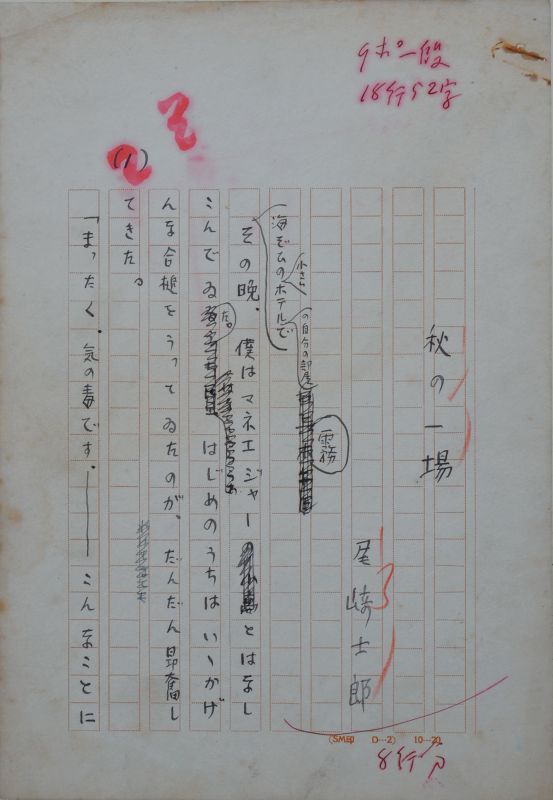 9ポ一段
18行52字
(1)
秋の一場
尾崎士郎
霧
の自分の部屋
小さい
海ぞひのホテルで
その晩、僕はマネエジャーとはなし
こんでゐた。はじめのうちはいゝかげ
んな合槌をうってゐたのが、だんだん昂奮し
てきた。
「まったく、気の毒です。――こんなことに
(SM印 0…2) 10—20
8行分